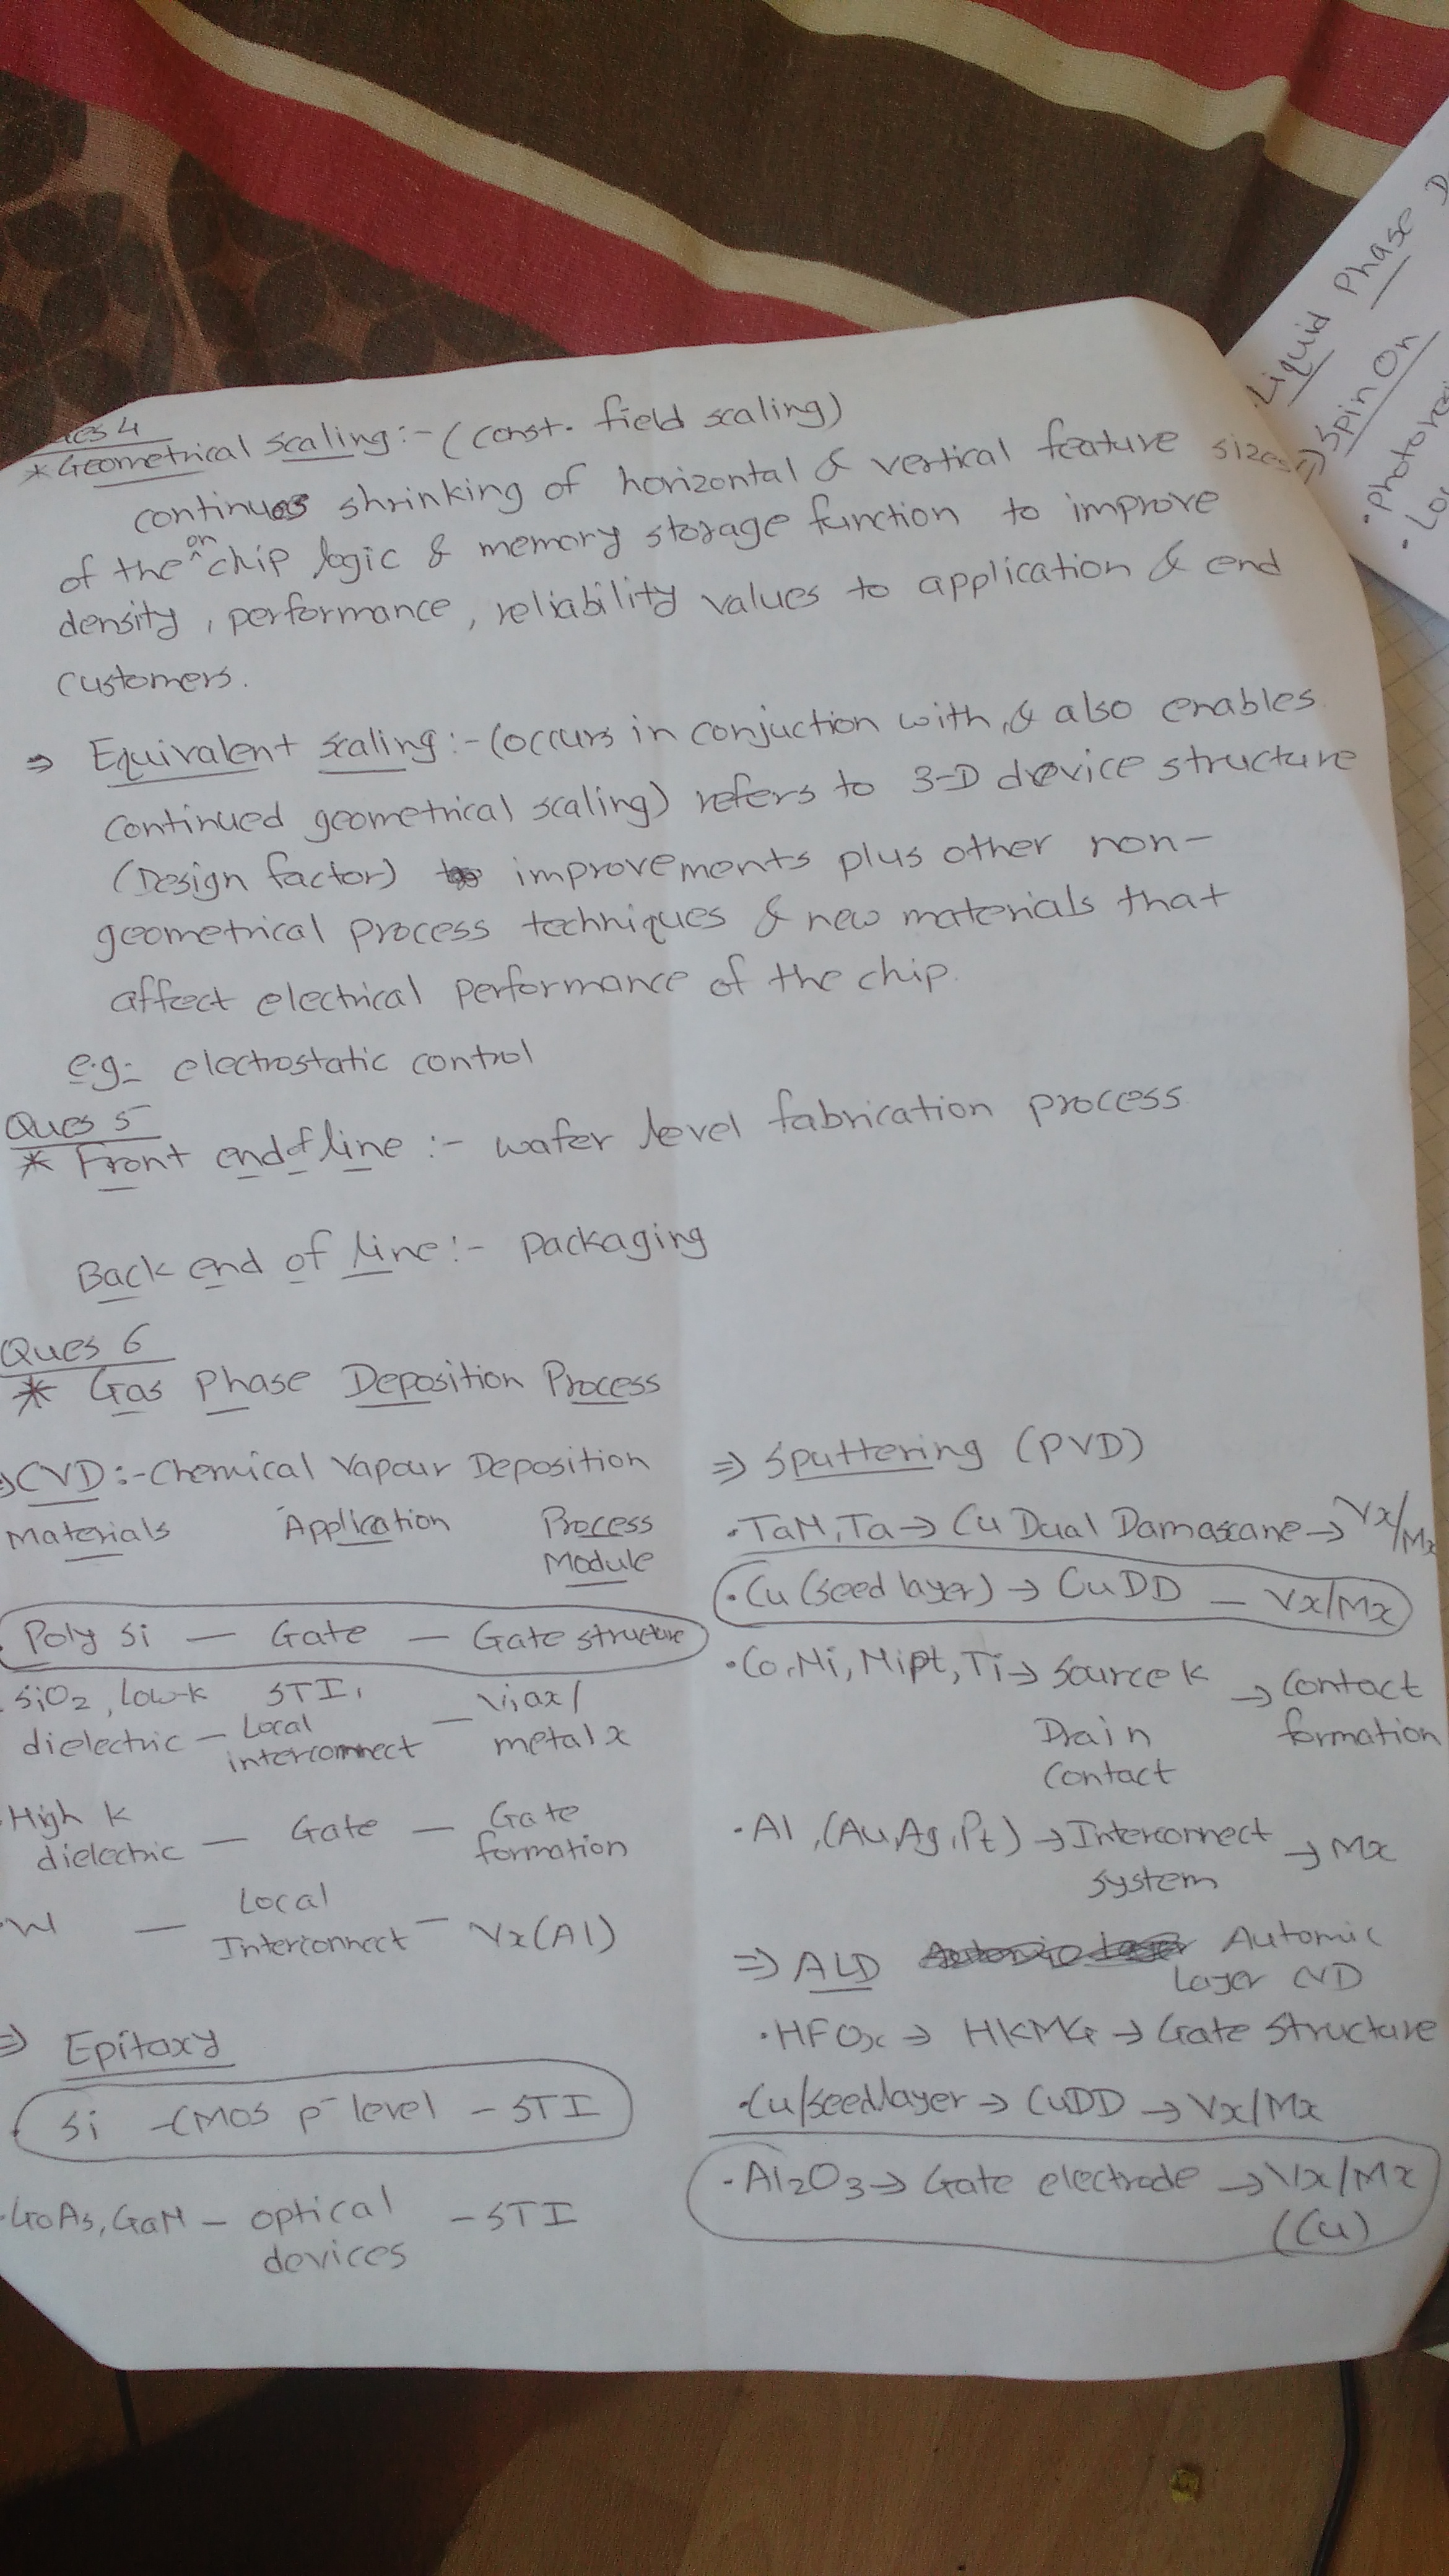 Ques 4
* Geometrical scaling :- (const. field scaling)
continues shrinking of horizontal & vertical feature sizes
of the on chip logic & memory storage function to improve
density, performance, reliability values to application & end
customers.
⇒ Equivalent scaling :- (occurs in conjuction with, & also enables
continued geometrical scaling) refers to 3-D device structure
(Design factor) improvements plus other non-
geometrical process techniques & new materials that
affect electrical performance of the chip.
e.g:- electrostatic control
Ques 5
* Front end of line :- wafer level fabrication process
Back end of line :- packaging
Ques 6
* Gas Phase Deposition Process
⇒ CVD :- Chemical Vapour Deposition
Materials Application Process
Module
• Poly Si — Gate — Gate structure
• SiO2, low-k STI, Viax/
dielectric — Local — metal x
interconnect
• High k — Gate — Gate
dielectric formation
• W — Local
Interconnect — Vx(Al)
⇒ Epitoxy
• Si - CMOS p- level - STI
• GaAs, GaN - optical - STI
devices
⇒ Sputtering (PVD)
• TaN, Ta → Cu Dual Damascane → Vx/Mx
• Cu (seed layer) → CuDD — Vx/Mx
• Co, Ni, Nipt, Ti → source k → Contact
Drain formation
Contact
• Al, (Au, Ag, Pt) → Interconnect → Mx
system
⇒ ALD Automic
Layer CVD
• HFOx → HKMG → Gate Structure
• Cu/seedlayer → CuDD → Vx/Mx
• Al2O3 → Gate electrode → Vx/Mx
(Cu)
Liquid Phase D
⇒ Spin On
• Photore
• Lo